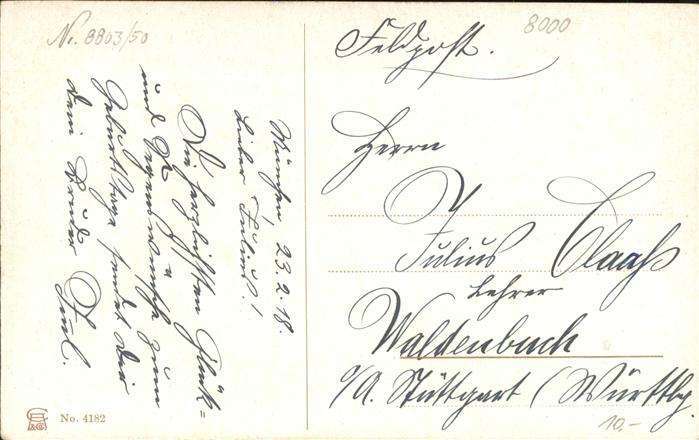 Nr. 8803/50
8000
Feldpost.
Herrn
Julius Claaß
Lehrer
Waldenbuch
o/A. Stuttgart (Württbg.
10.-
München, 23.2.18.
Lieber Julius!
Die herzlichsten Glück=
und Segenswünsche zum
Geburtstage sendet Dir
Dein Bruder
No. 4182